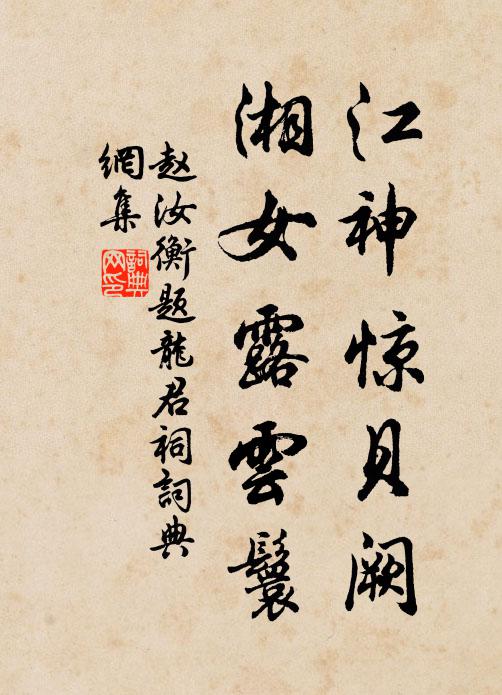 江神惊贝阙
湘女露雲鬟
赵汝衡题龍君祠詞典
網集
詞典
网印